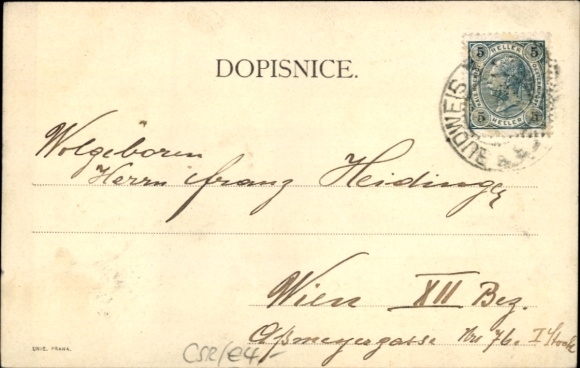 DOPISNICE.
5 HELLER 5
5 HELLER 5
BUDWEIS
Wolgeboren
Herrn Franz Heidinger
Wien XII Bez.
Aßmayergasse No 76. I Stock
UNIE, PRAHA.
CSR/e4/-